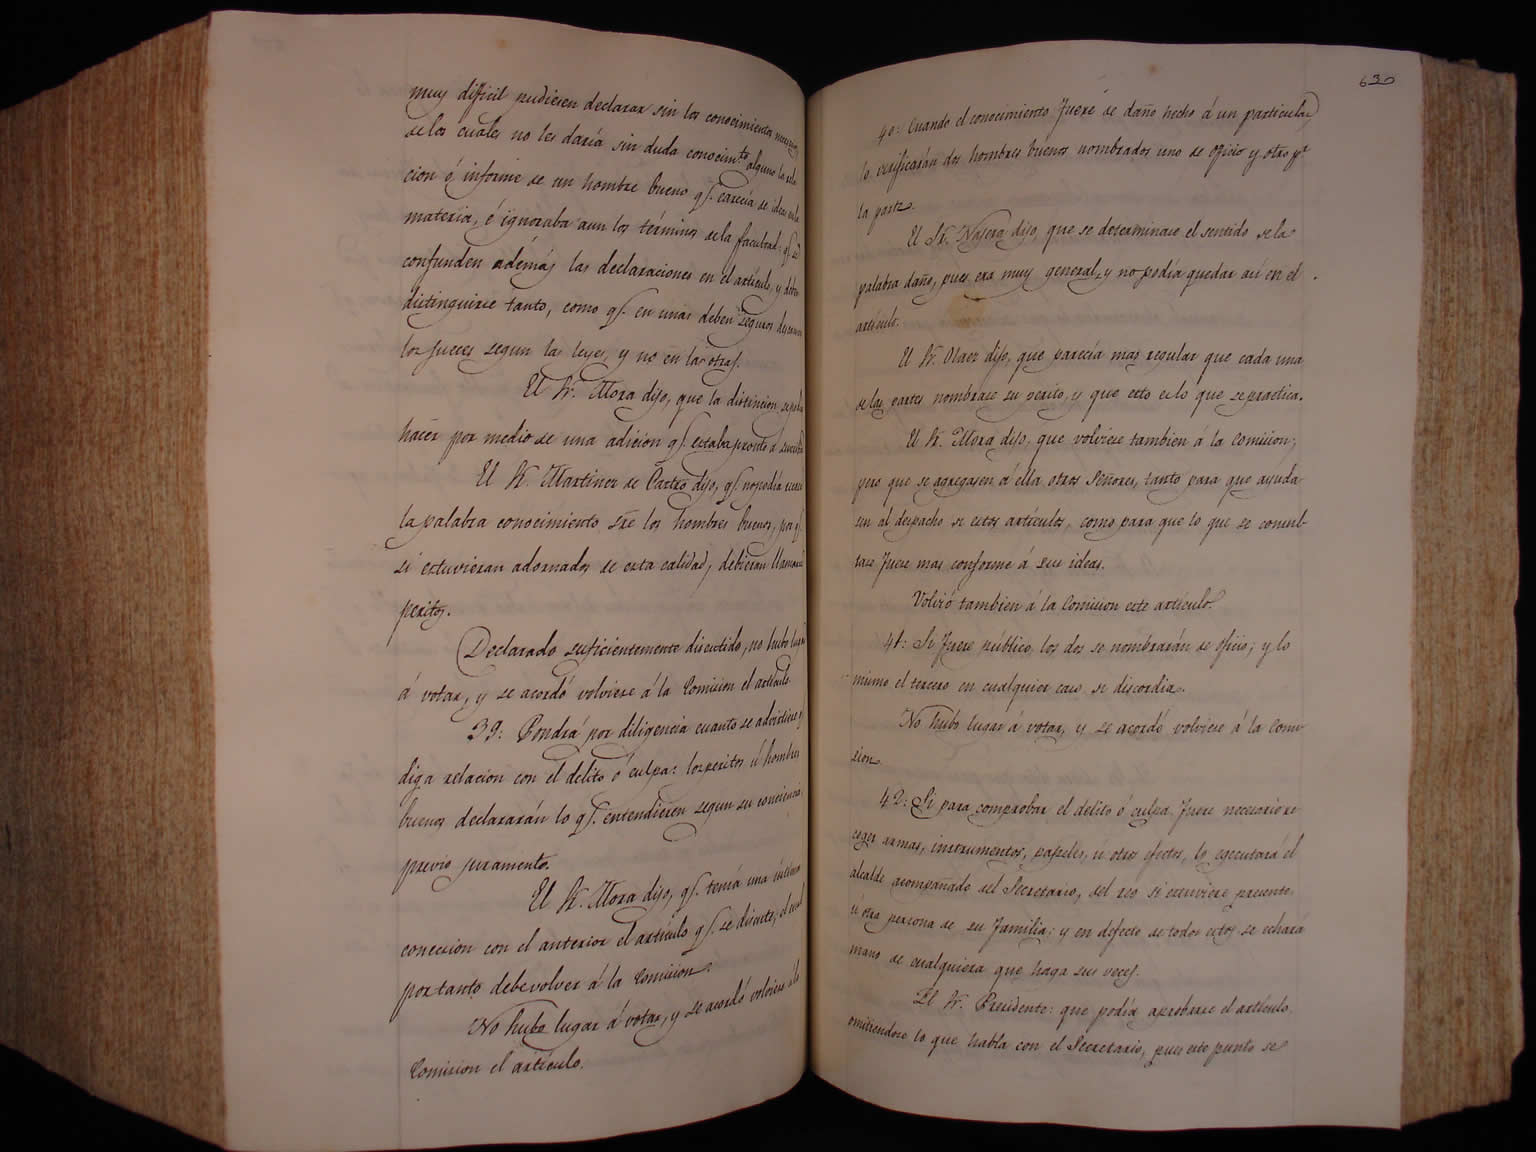 muy dificil pudiesen declarar sin los conocimientos
de los cuales no les daría sin duda conocim.to alguno la rela
cion ó informe de un hombre bueno q.e carecía de ideas en la
materia, é ignoraba aun los términos de la facultad: q.e se
confunden además las declaraciones en el artículo, y deben
distinguirse tanto, como q.e en unas deben seguros descansar
los jueces segun las leyes, y no en las otras.
El Sr. Mora dijo, que la distincion se podia
hacer por medio de una adicion q.e estaba pronto á suscribir
El Sr. Martinez de Castro dijo, q.e no podía
la palabra conocimiento sre los hombres buenos, por q.e
si estuvieran adornados de esta calidad, debieran llamarse
peritos.
Declarado suficientemente discutido, no hubo lugar
á votar, y se acordó volviese á la Comision el artículo.
39: Pondrá por diligencia cuanto se advirtiere y
diga relacion con el delito ó culpa: los peritos ú hombres
buenos declararán lo q.e entendieren segun su conciencia
previo juramento.
El Sr. Mora dijo, q.e tenía una íntima
coneccion con el anterior el artículo q.e se discute, el cual
por tanto debe volver á la Comision.
No hubo lugar á votar, y se acordó volviese á la
Comision el artículo.
630
40: Cuando el conocimiento fuere de daño hecho á un particular,
lo verificarán dos hombres buenos nombrados uno de oficio y otro pr
la parte.
El Sr. Najera dijo, que se determinase el sentido de la
palabra daño, pues era muy general, y no podía quedar así en el
artículo.
El Sr. Olaez dijo, que parecía mas regular que cada una
de las partes nombrase su perito, y que esto es lo que se practica.
El Sr. Mora dijo, que volviese tambien á la Comision;
pero que se agregasen á ella otros Señores, tanto para que ayuda
sen al despacho de estos artículos, como para que lo que se consul-
tase fuese mas conforme á sus ideas.
Volvió tambien á la Comision este artículo.
41: Si fuere público, los dos se nombrarán de oficio; y lo
mismo el tercero en cualquier caso de discordia.
No hubo lugar á votar, y se acordó volviese á la Comi-
sion.
42: Si para comprobar el delito ó culpa fuere necesario re
coger armas, instrumentos, papeles, ú otros efectos, lo egecutará el
alcalde acompañado del Secretario, del reo si estuviere presente,
ú otra persona de su familia; y en defecto de todos estos se echará
mano de cualquiera que haga sus veces.
El Sr. Presidente: que podía aprobarse el artículo,
omitiendose lo que habla con el Secretario, pues este punto se